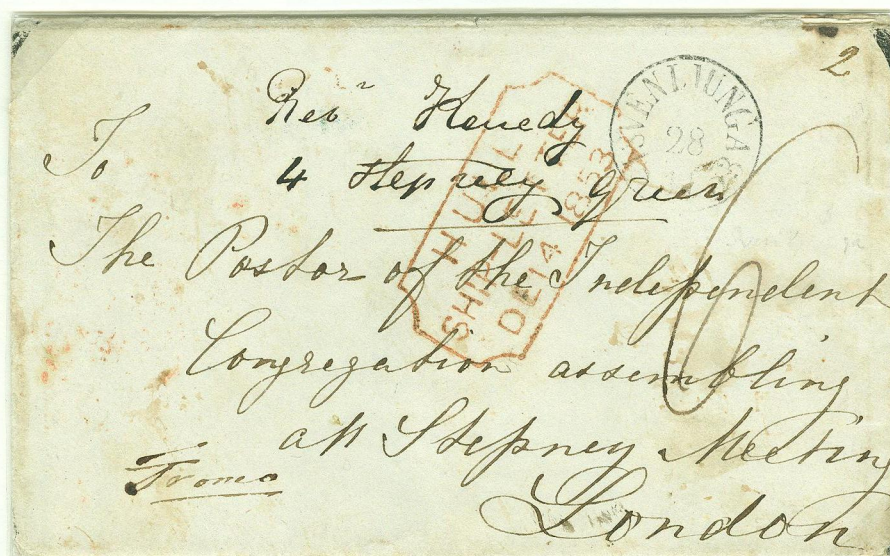 2
Revn Kenedy
To
4 Stepney Green
The Pastor of the Independent
Congregation assembling
att Stepney Meeting
London
Franco
HULL
SHIP LETTER
DE 14 1853
SVENLJUNGA
28